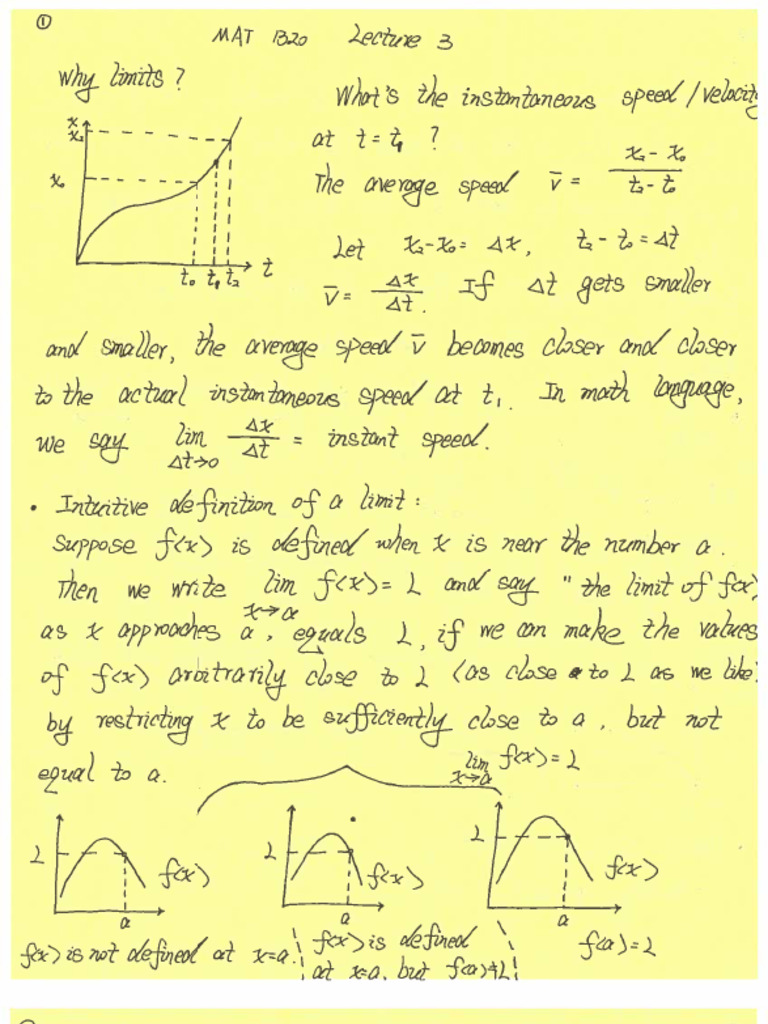 ①
MAT 1320 Lecture 3
Why limits?
What's the instantaneous speed / velocity
at t = t₁ ?
x
x₂
x₀
t₀ t₁ t₂ t
The average speed v̄ = (x₂ - x₀)/(t₂ - t₀)
Let x₂-x₀ = Δx, t₂ - t₀ = Δt
v̄ = Δx/Δt. If Δt gets smaller
and smaller, the average speed v̄ becomes closer and closer
to the actual instantaneous speed at t₁. In math language,
we say lim Δt→0 Δx/Δt = instant speed.
• Intuitive definition of a limit:
Suppose f(x) is defined when x is near the number a.
Then we write lim x→a f(x) = L and say "the limit of f(x)
as x approaches a, equals L, if we can make the values
of f(x) arbitrarily close to L (as close to L as we like)
by restricting x to be sufficiently close to a, but not
equal to a.
lim x→a f(x) = L
L a f(x)
L a f(x)
L a f(x)
f(x) is not defined at x=a.
f(x) is defined
at x=a, but f(a)≠L
f(a) = L